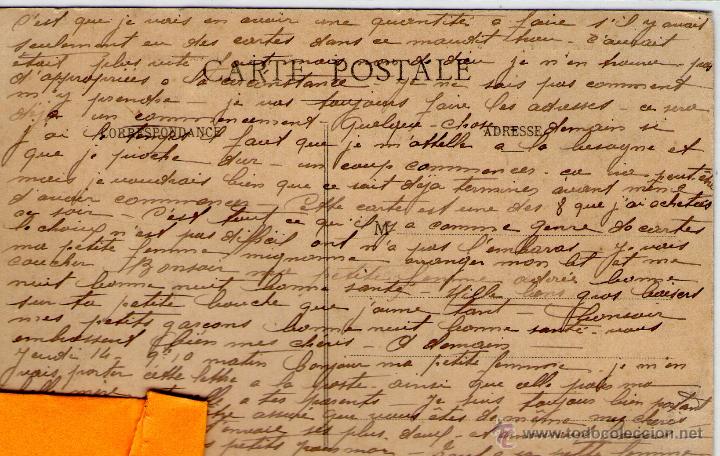 c'est que je vais en avoir une quantité à faire s'il y avait
seulement eu des cartes dans ce maudit trou - ç'aurait
était plus vite fait mais je n'en trouve pas
CARTE POSTALE
d'appropriées à la circonstance Je ne sais pas comment
m'y prendre - je vais toujours faire les adresses - ce sera
déja un commencement Quelque chose demain si
CORRESPONDANCE
ADRESSE
j'ai le temps il faut que je m'attelle à la besogne et
que je pioche dur - un coup commencé ca va peut être
mais je voudrais bien que ce soit déja terminé avant même
d'avoir commencé - Cette carte est une des 8 que j'ai achetées
ce soir - C'est tout ce qu'il y a comme genre de cartes
M
le choix n'est pas difficil ont n'a pas l'embaras Je vais
ma petite femme mignonne arranger mon lit et me
coucher Bonsoir ma petite femme adorée bonne
nuit bonne nuit bonne santé Mille gros baisers
sur ta petite bouche que j'aime tant - Bonsoir
mes petits garçons bonne nuit bonne santé vous
embrasser bien mes cheris - A demain
Jeudi 14 - 9h10 matin Bonjour ma petite femme je m'en
vais porter cette lettre à la poste ainsi que celle pour ma
à tes parents - Je suis toujours bien portant
assuré que vous êtes de même mes chéris
envoie ses plus doux et
petits
www.todocoleccion.net